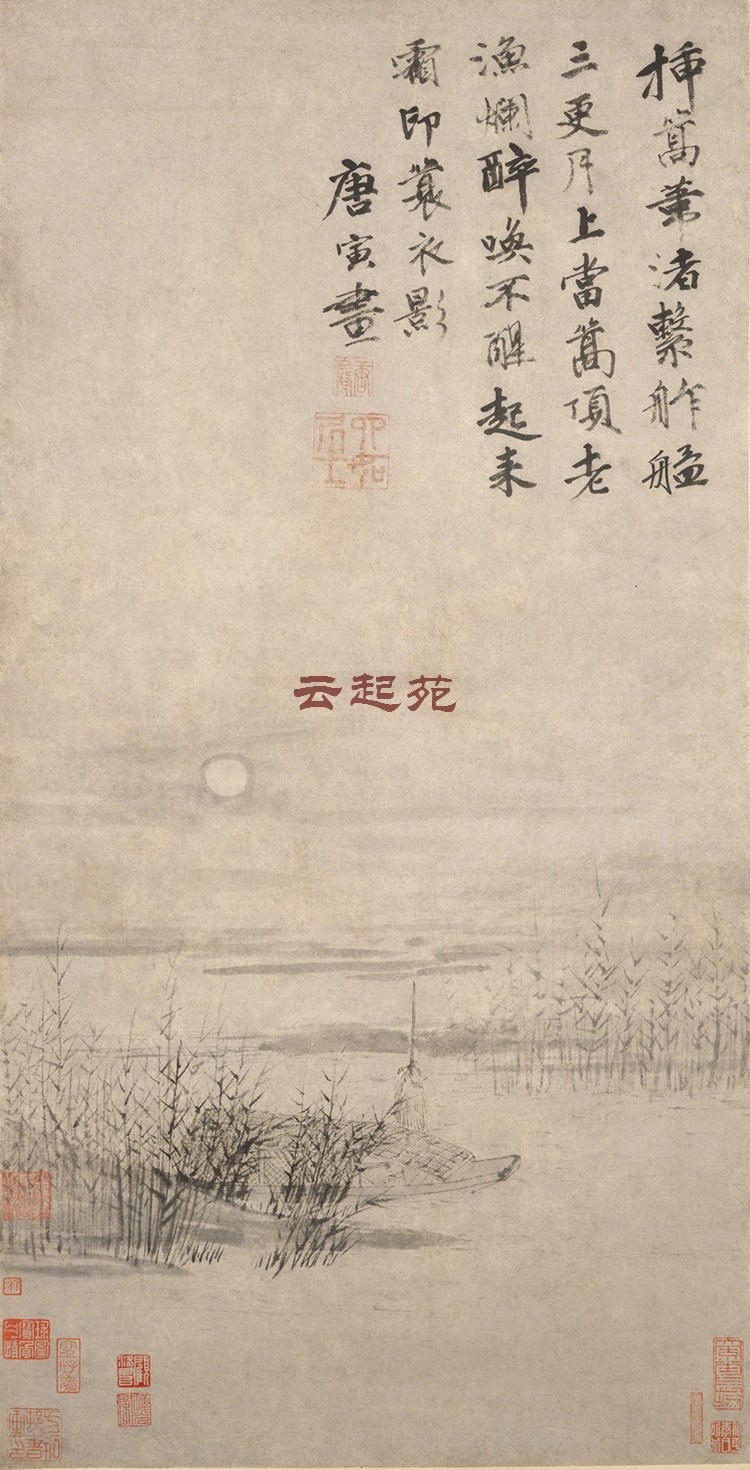 插篙葦渚繫舴艋
三更月上當篙頂老
漁爛醉喚不醒起来
霜印蓑衣影
唐寅畫
云起苑